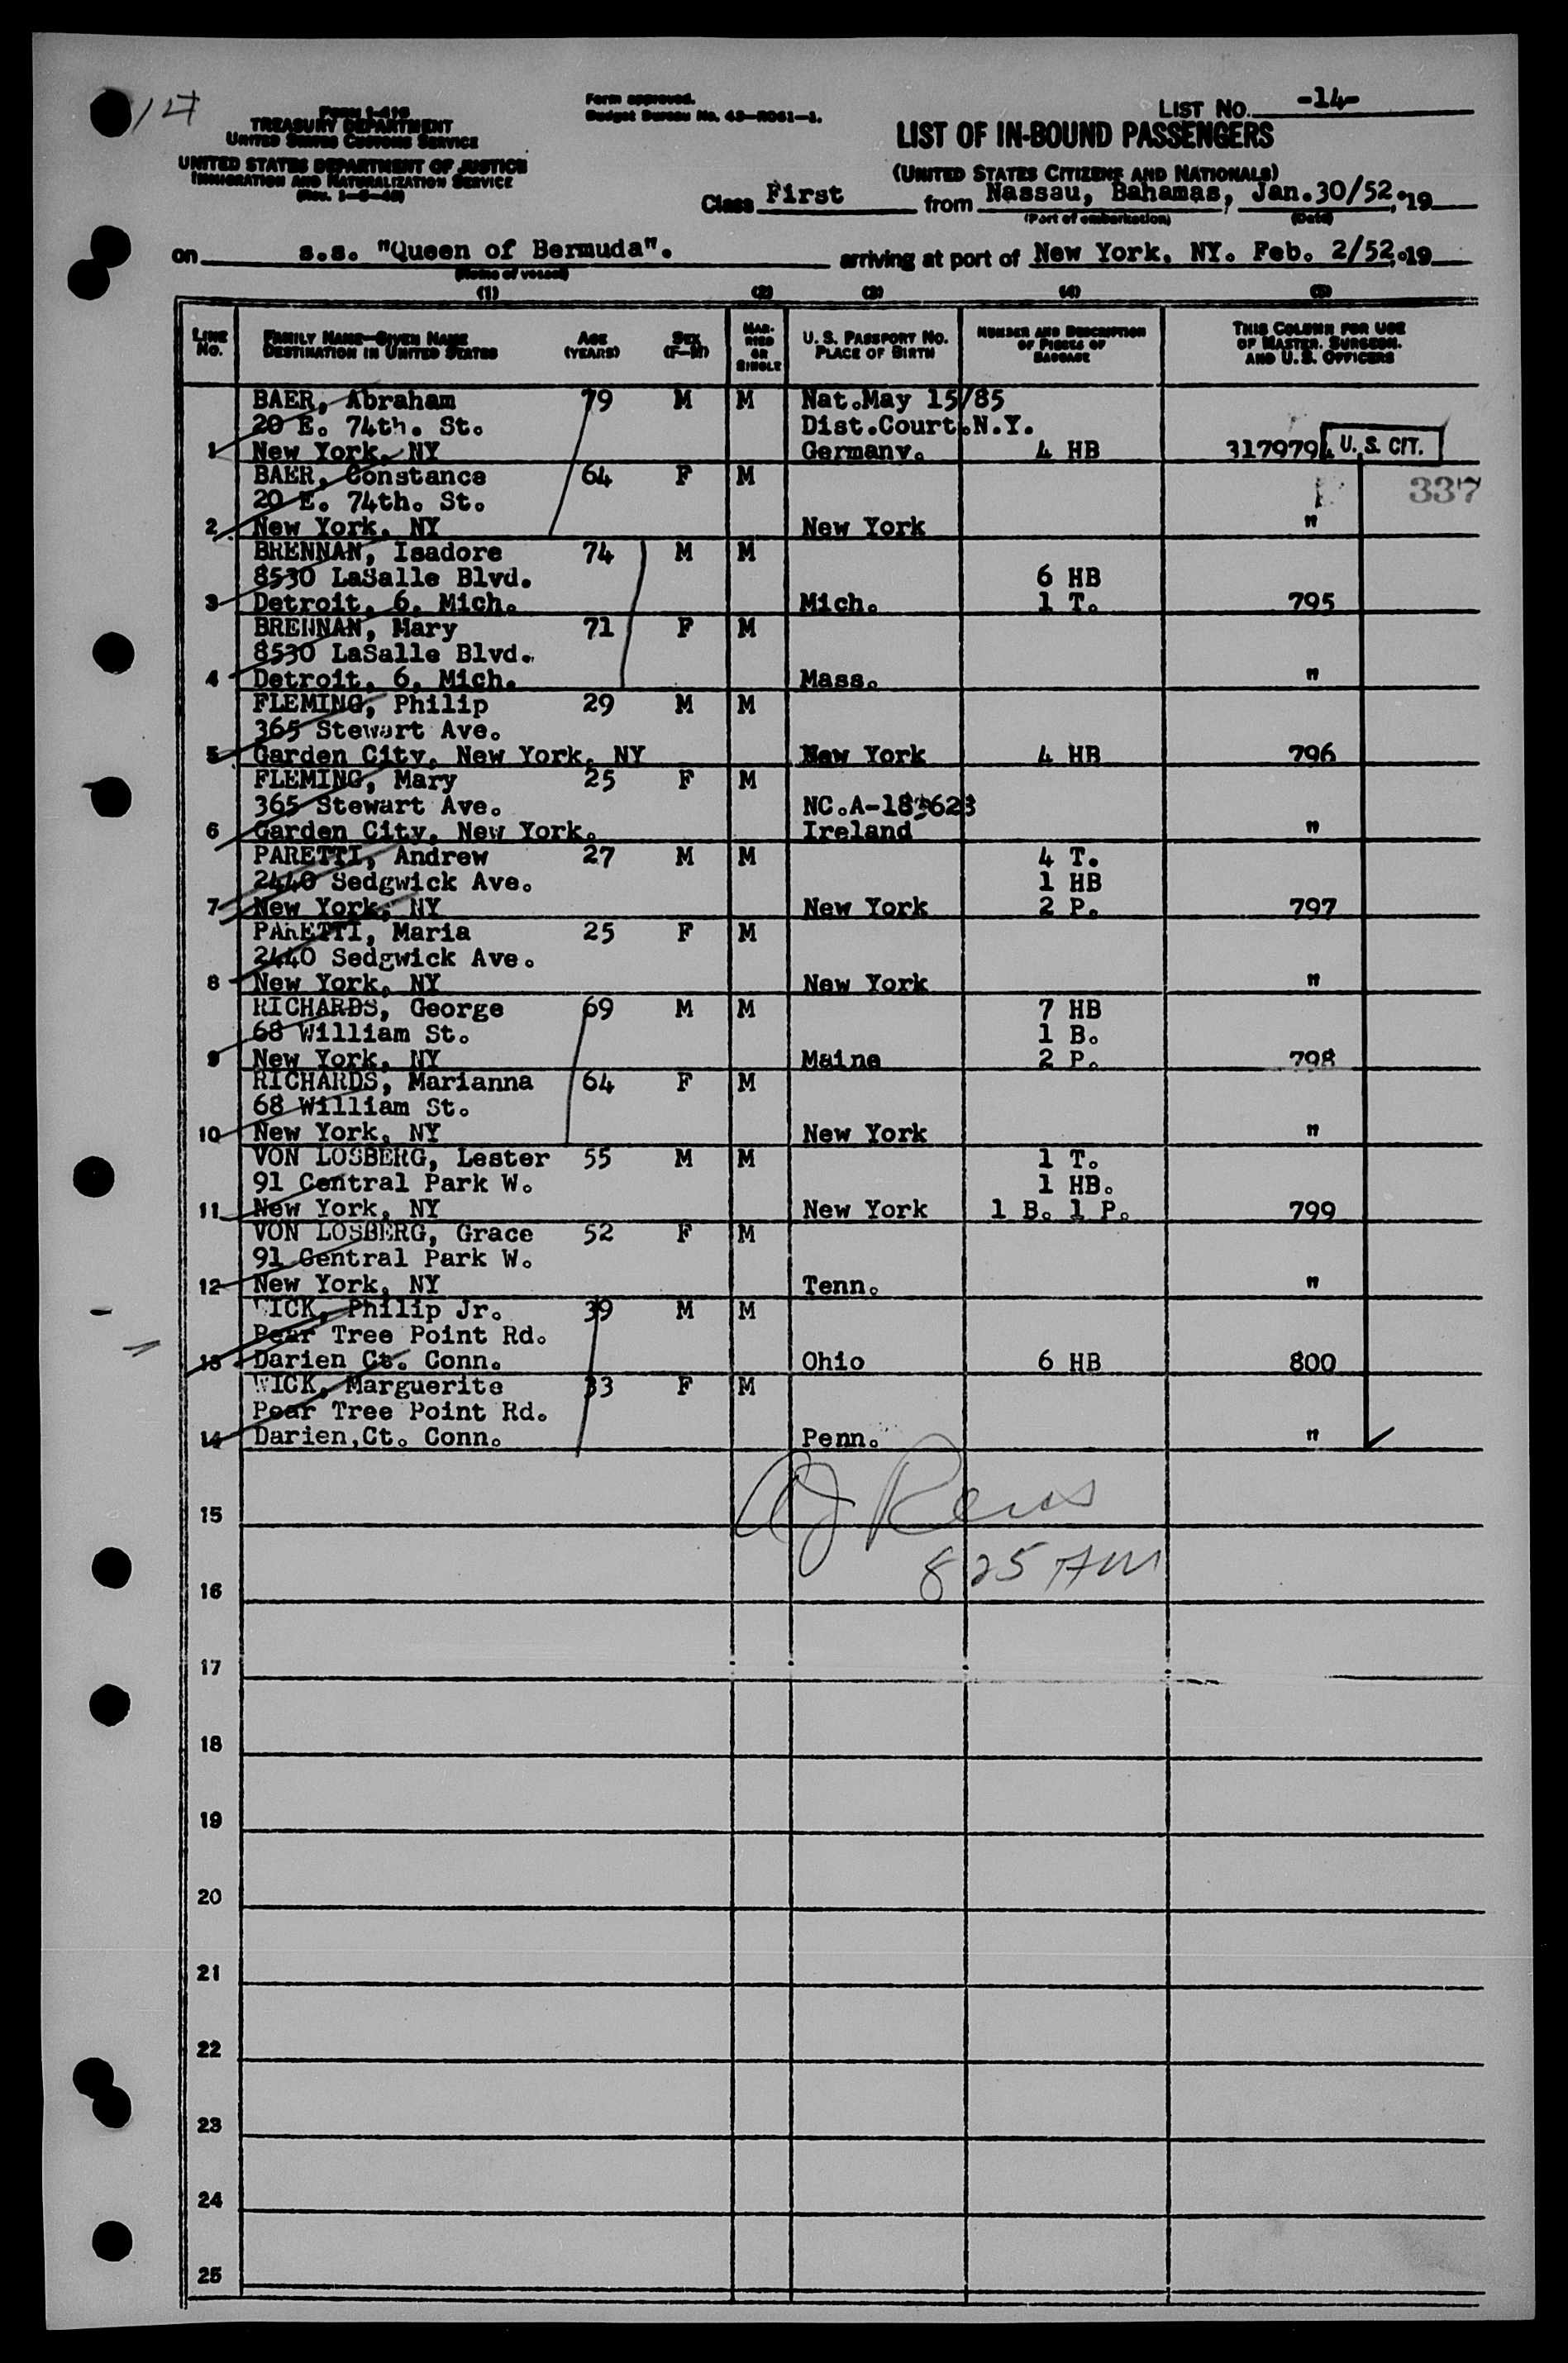 14
LIST NO. -14-
Form I-416
TREASURY DEPARTMENT
UNITED STATES CUSTOMS SERVICE
UNITED STATES DEPARTMENT OF JUSTICE
IMMIGRATION AND NATURALIZATION SERVICE
Form approved.
Budget Bureau No. 43-R061-1.
LIST OF IN-BOUND PASSENGERS
(UNITED STATES CITIZENS AND NATIONALS)
Class First from Nassau, Bahamas, Jan.30/52. 19
(Port of embarkation) (Date)
on s.s. "Queen of Bermuda". arriving at port of New York, NY. Feb. 2/52. 19
(Name of vessel)
(1) (2) (3) (4) (5)
LINE No. FAMILY NAME—GIVEN NAME DESTINATION IN UNITED STATES AGE (YEARS) SEX (F—M) MARRIED OR SINGLE U. S. PASSPORT NO. PLACE OF BIRTH NUMBER AND DESCRIPTION OF PIECES OF BAGGAGE THIS COLUMN FOR USE OF MASTER, SURGEON, AND U. S. OFFICERS
BAER, Abraham 79 M M Nat.May 15/85
20 E. 74th. St. Dist.Court.N.Y.
1 New York, NY Germany. 4 HB 3179794 U. S. CIT.
BAER, Constance 64 F M 337
20 E. 74th. St.
2 New York, NY New York "
BRENNAN, Isadore 74 M M
8530 LaSalle Blvd. 6 HB
3 Detroit, 6, Mich. Mich. 1 T. 795
BRENNAN, Mary 71 F M
8530 LaSalle Blvd.
4 Detroit, 6, Mich. Mass. "
FLEMING, Philip 29 M M
365 Stewart Ave.
5 Garden City, New York, NY New York 4 HB 796
FLEMING, Mary 25 F M
365 Stewart Ave. NC.A-
6 Garden City, New York. Ireland "
PARETTI, Andrew 27 M M 4 T.
2440 Sedgwick Ave. 1 HB
7 New York, NY New York 2 P. 797
PARETTI, Maria 25 F M
2440 Sedgwick Ave.
8 New York, NY New York "
RICHARDS, George 69 M M 7 HB
68 William St. 1 B.
9 New York, NY Maine 2 P. 798
RICHARDS, Marianna 64 F M
68 William St.
10 New York, NY New York "
VON LOSBERG, Lester 55 M M 1 T.
91 Central Park W. 1 HB.
11 New York, NY New York 1 B. 1 P. 799
VON LOSBERG, Grace 52 F M
91 Central Park W.
12 New York, NY Tenn. "
WICK, Philip Jr. 39 M M
Pear Tree Point Rd.
13 Darien Ct. Conn. Ohio 6 HB 800
WICK, Marguerite 33 F M
Pear Tree Point Rd.
14 Darien,Ct. Conn. Penn. "
15
8 25 AM
16
17
18
19
20
21
22
23
24
25